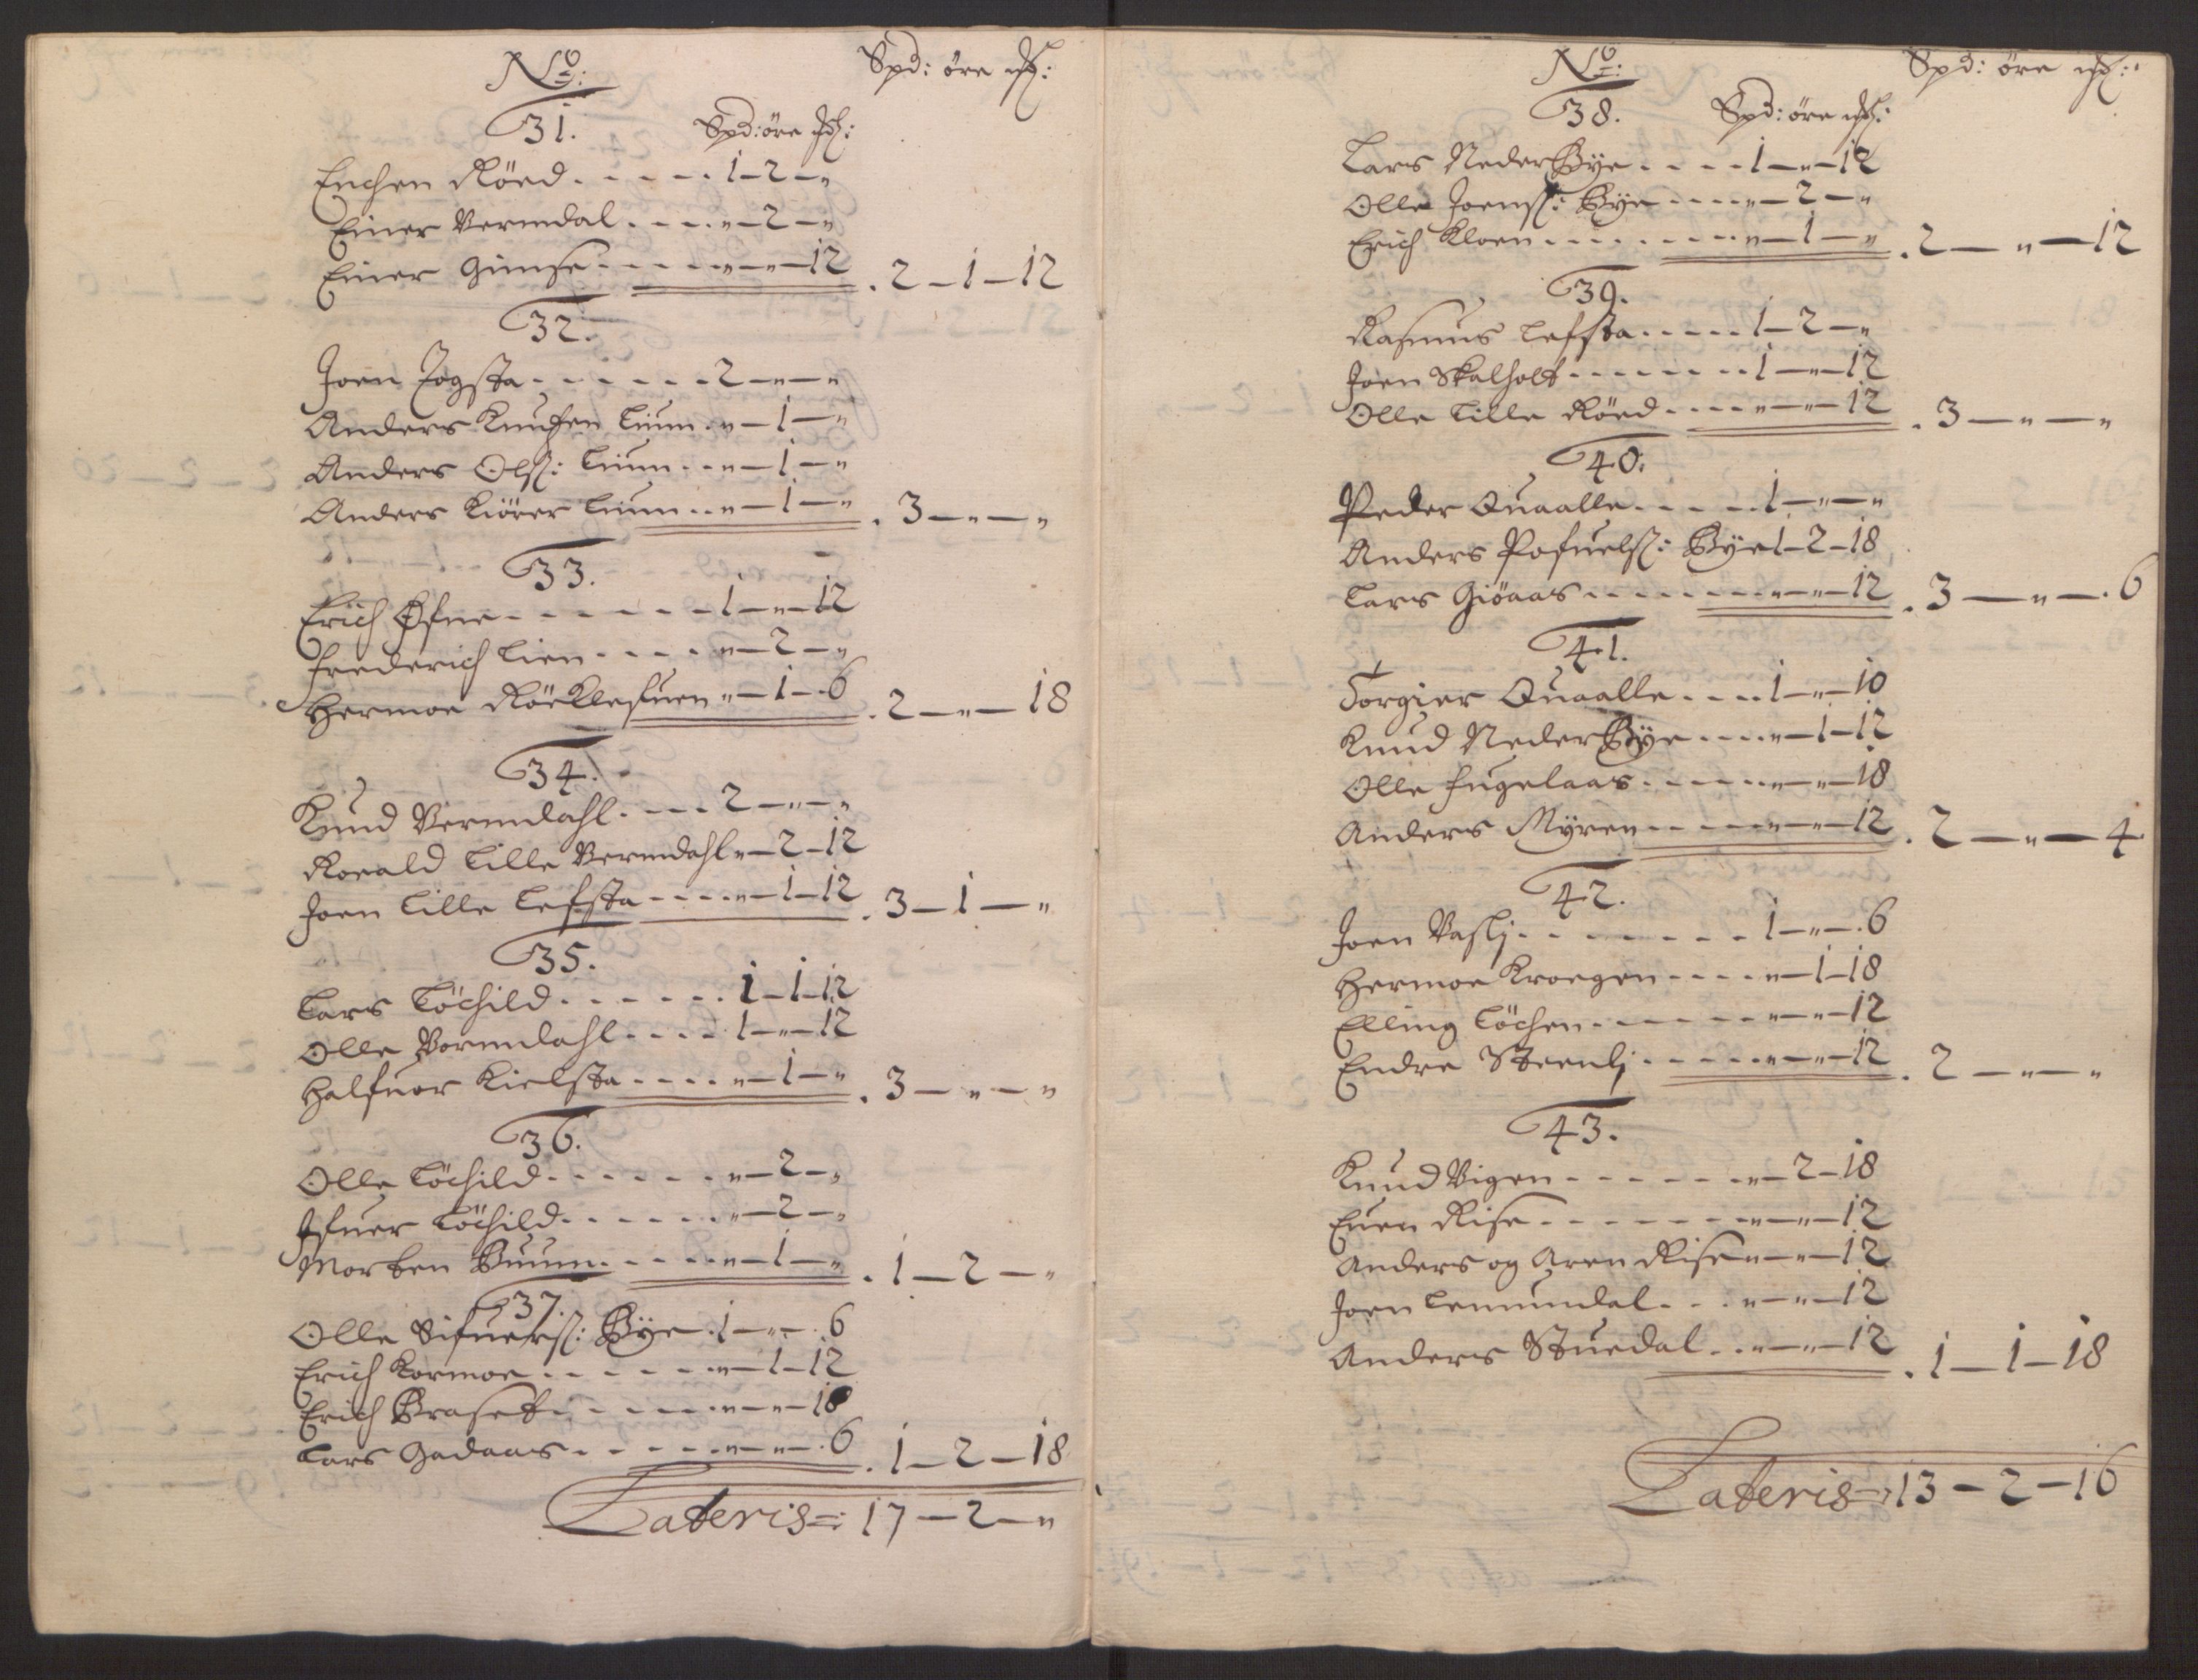 No:
Spd: öre
31. Spd: öre
Enchen Röed. - - - - 1-2-"
Einer Vermdal. - - - "-2-"
Einer Gimse - - - - "-"-12 . 2-1-12
32.
Joen Jogsta - - - - - 2-"-"
Anders Knudsen Lium . "-1-"
Anders Olss: Lium - - "-1-"
Anders Kiörer Lium . . "-1-" . 3-"-"
33.
Erich Øfne - - - - - 1-"-12
Frederich Lien - - - - "-2-"
Hermoe Röelleffuen "-1-6 . 2-"-18
34.
Knud Vermdahl. - - - 2-"-"
Roeald Lille Vermdahl "-2-12
Joen Lille Lefsta - - - "-1-12 . 3-1-"
35.
Lars Löchild. - - - - 1-1-12
Olle Vormdahl - - - 1-"-12
Halfuor Kielsta - - - "-1-" . 3-"-"
36.
Olle Löchild - - - - - "-2-"
Ifuer Löchild - - - - - "-2-"
Morten Buum - - - - "-1-" . 1-2-"
37.
Olle Sifuerss: Bÿe . 1-"-6
Erich Kormoe - - - - "-1-12
Erich Braset - - - - "-"-18
Lars Gadaas - - - - "-"-6 . 1-2-18
Lateris =: 17-2-"
No:
Spd: öre
38. Spd: öre
Lars NederBÿe - - - - 1-"-12
Olle Joenss: Bÿe - - - "-2-"
Erich Kloen - - - - - "-1-" . 2-"-12
39.
Rasmus Lefsta - - - - 1-2-"
Joen Skalholt - - - - 1-"-12
Olle Lille Röed - - - "-"-12 . 3-"-"
40:
Peder Quaalle - - - - 1-"-"
Anders Pofuelss: Bÿe 1-2-18
Lars Giöaas - - - - - "-"-12 . 3-"-6
41.
Torgier Quaalle - - - 1-"-10
Knud NederBÿe - - - "-1-12
Olle Fugelaas - - - - "-"-18
Anders Mÿren - - - - "-"-12 . 2-"-4
42.
Joen Vaslj - - - - - 1-"-6
Hermoe Kroegen - - - "-1-18
Elling Löchen - - - - "-"-12
Endre Steenlj - - - - "-"-12 . 2-"-"
43.
Knud Vigen - - - - - "-2-18
Euen Rise - - - - - "-"-12
Anders og Aren Rise "-"-12
Joen Lemundal - - - "-"-12
Anders Stuedal . . "-"-12 . 1-1-18
Lateris =: 13-2-16